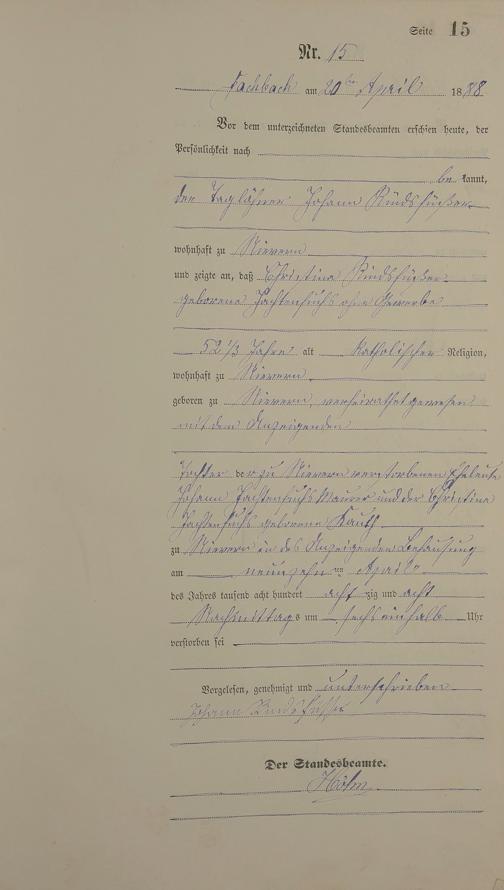 Seite 15
Nr. 15
Fachbach am 20ten April 1888
Vor dem unterzeichneten Standesbeamten erschien heute, der
Persönlichkeit nach
be kannt,
der Taglöhner Johann
wohnhaft zu Nievern
und zeigte an, daß Christina
geborene Fachtenfuchs ohne Gewerbe
52 1/3 Jahre alt katholischer Religion,
wohnhaft zu Nievern
geboren zu Nievern, verheirathet gewesen
mit dem Anzeigenden
Tochter der zu Nievern verstorbenen Eheleute
Johann Fachtenfuchs Maurer und der Christina
Fachtenfuchs geborene Kauth
zu Nievern in des Anzeigenden Behausung
am neunzehnten April
des Jahres tausend acht hundert acht zig und acht
Nachmittags um sechs einhalb Uhr
verstorben sei
Vorgelesen, genehmigt und unterschrieben
Johann
Der Standesbeamte.